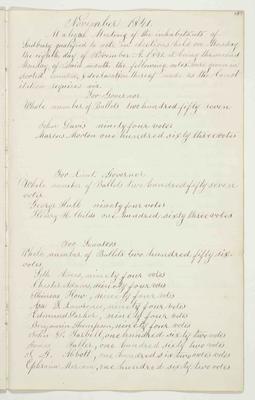 November 1841.
At a legal Meeting of the inhabitants of
Sudbury qualified to vote in elections held on Monday
the eighth day of November A.D. 1841 it being the second
Monday of said month the following votes were given in
sorted counted & declaration thereof made as the Const
itution requires viz
For Governor
Whole number of Ballots two hundred fifty seven
John Davis ninety four votes
Marcus Morton one hundred sixty three votes
For Lieut Governor
Whole number of Ballots two hundred fifty seven
votes
George Hull ninety four votes
Henry H. Childs one hundred sixty three votes
For Senators
Whole number of Ballots two hundred fifty six
votes
Seth Ames, ninety four votes
Chester Adams, ninety four votes
Thomas How, ninety four votes
ninety four votes
Edmund Parker, ninety four votes
Benjamin Thompson, ninety four votes
John S. Tarbell, one hundred sixty two votes
Fuller, one hundred sixty two votes
Abbott, one hundred six two votes votes
Ephraim Meriam, one hundred sixty two votes